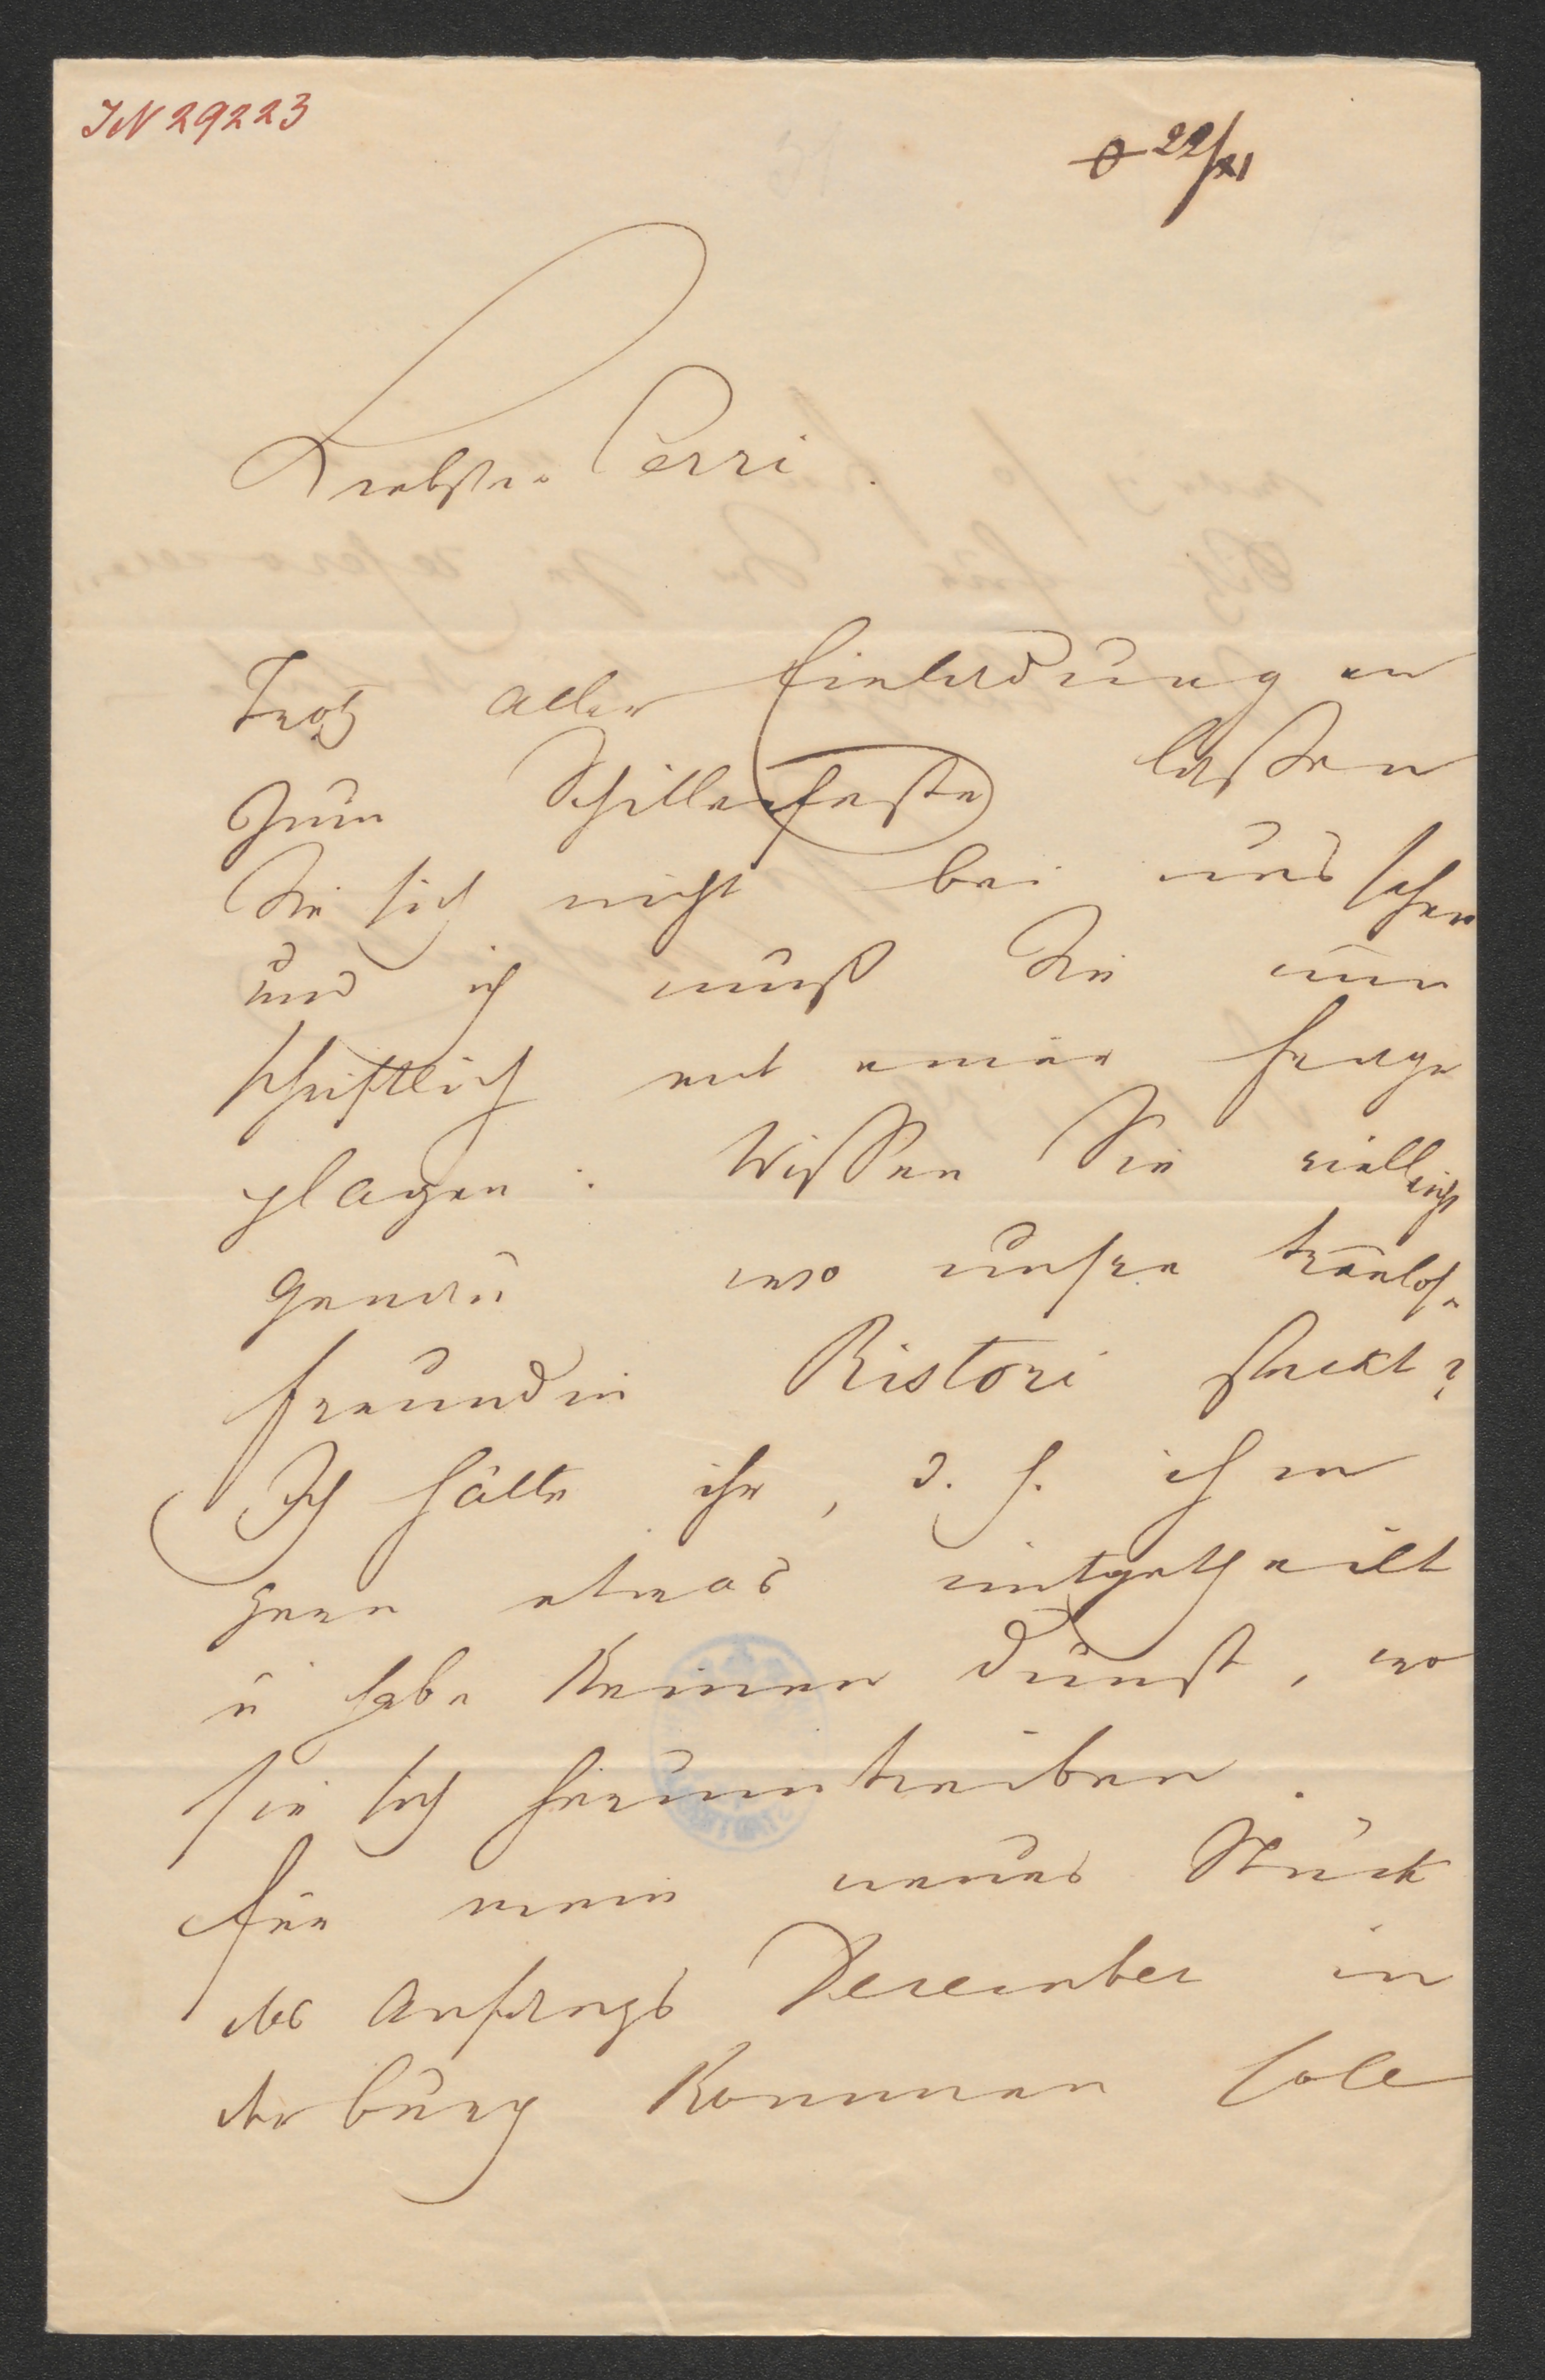 IN 29223
22/XI
Liebster Cerri
Trotz aller Einladungen
zum Schillerfeste lassen
Sie sich nicht bei uns sehen
und ich muß Sie nun
schriftlich mit einer Frage
plagen: Wissen Sie vielleicht
genau wo unsre treulose
Freundin Ristori steckt?
Ich hätte ihr, d. h. ihnen
gern etwas mitgetheilt
u habe keinen Dunst, wo
sie sich herumtreiben.
Für mein neues Stück
das Anfangs Dezember in
der Burg kommen soll